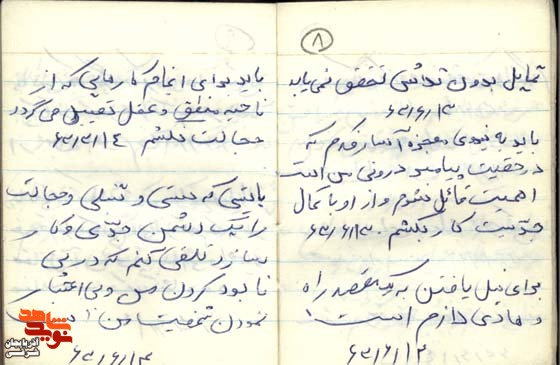 ۸
تمایل بدون تلاش تحقق نمی یابد
۶۳/۶/۱۳
باید به نیروی معجزه آسا
در حقیقت پیامبر درونی من است
اهمیت قائل شوم و از او با کمال
جدّیت کار بکشم. ۶۳/۶/۱۳
برای نیل یافتن به یک مقصد راه
و هادی لازم است
۶۳/۶/۱۳
باید برای انجام کارهایی که از
ناحیه منطق و عقل تعیین می گردد
خجالت نکشم ۶۳/۳/۱۴
بایستی که سستی و تنبلی و خجالت
را یک دشمن جدّی و
تلقی کنم که در پی
نابود کردن من و بی اعتبار
نمودن شخصیت من است
۶۳/۶/۱۳
نوید شاهد
آذربایجان شرقی